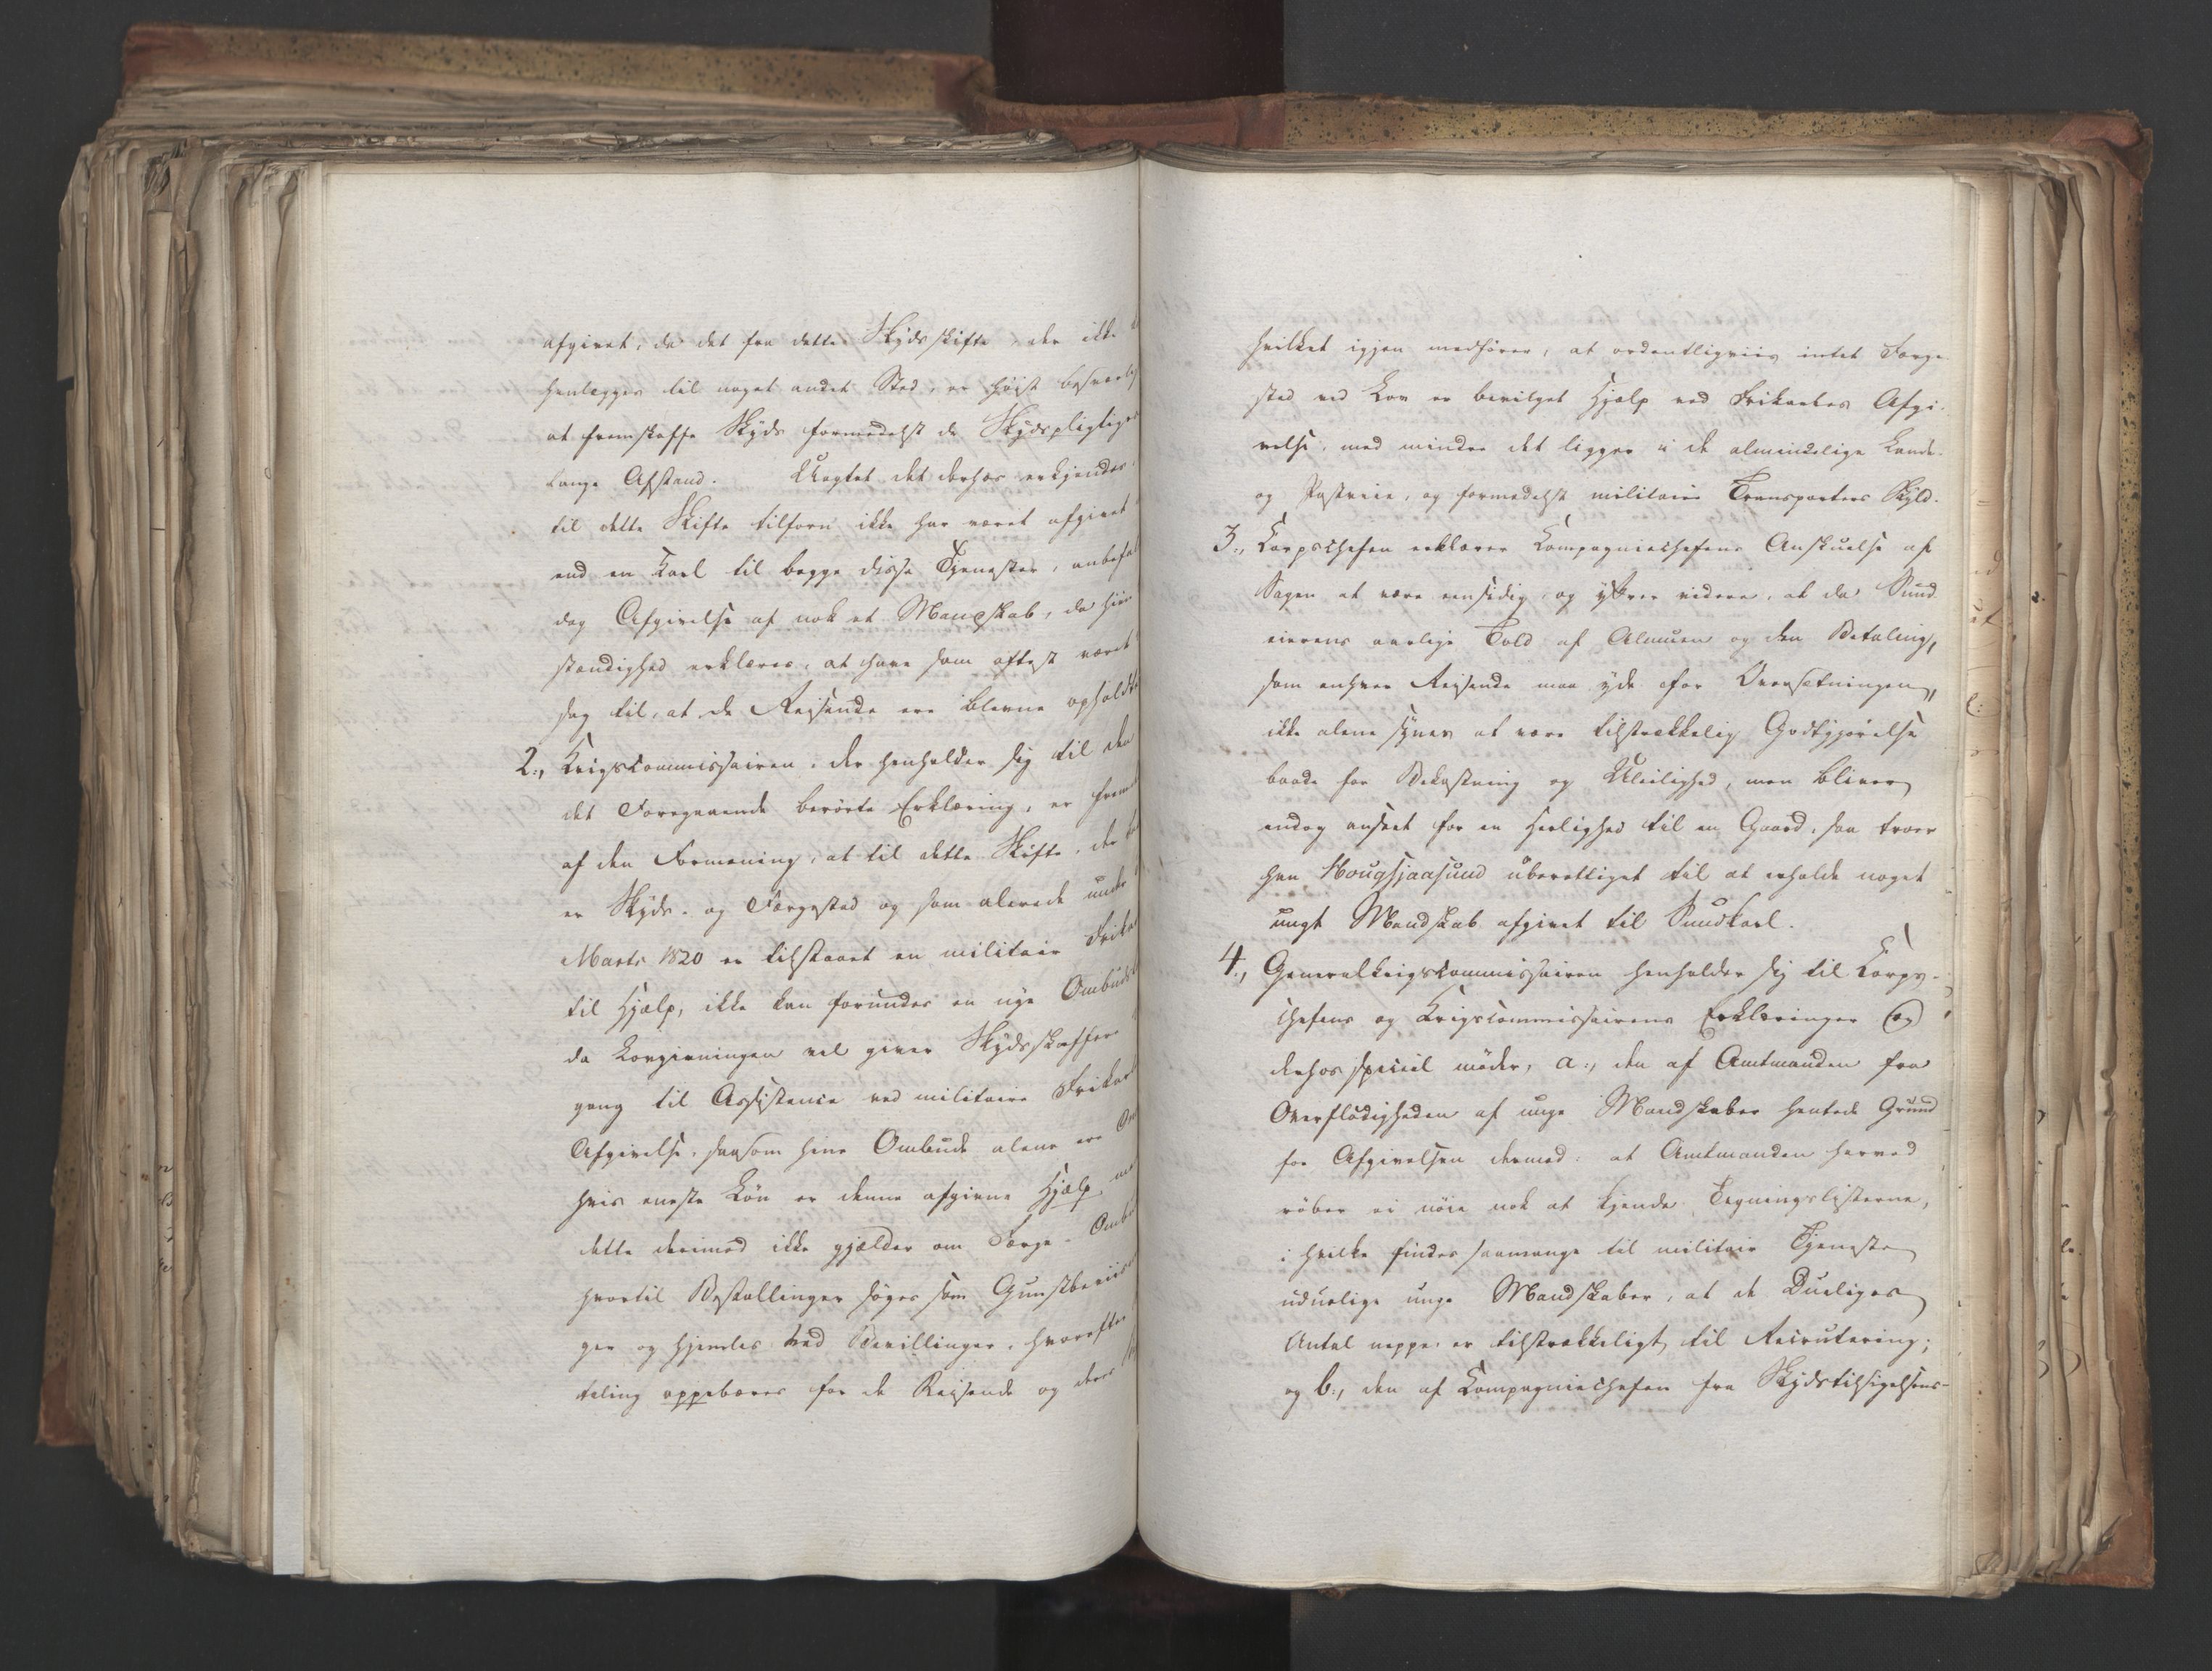 afgivet, da det fra dette Skydsskifte, der ikke
henlægges til noget andet Sted, er høist besværlig
at fremskaffe Skyds formedelst de Skydspligtiges
lange Afstand. Uagtet det derhos erkjendes,
til dette Skifte tilforn ikke har været afgivet
end en Karl til begge disse Tjenester, anbefal
dog Afgivelse af nok et Mandskab, da hiin
stændighed erklæres, at have som oftest været
sag til, at de Reisende ere blevne opholdte
2., Krigscommissairen, der henholder sig til den
det Foregaaende berørte Erklæring, er frem
af den Formening, at til dette Skifte, der
er Skyds- og Færgested og som allerede under
Marts 1820 er tilstaaet en militair Frikar
til Hjælp, ikke kan forundes en nye Ombuds
da Lovgivningen vel giver Skydsskaffere
gang til Assistence ved militaire Frikarl
Afgivelse, saasom hine Ombude alene ere
hvis eneste Løn er denne afgivne Hjælp,
dette derimod ikke gjælder om Færge-Ombu
hvortil Bestallinger søges som Gunstbeviis
ger og hjemles ved Bevillinger, hvorefter
taling oppebæres for de Reisende og deres
hvilket igjen medfører, at ordentligviis intet Færge-
sted ved Lov er bevilget Hjælp ved Frikarles Afgi-
velse, med mindre det ligger i de almindelige Lande-
og Postveie, og formedelst militaire Transporters Skyld.
3., Corpschefen erklærer Compagniechefens Anskuelse af
Sagen at være eensidig, og yttrer videre, at da Sund-
eierens aarlige Told af Almuen og den Betaling,
som enhver Reisende maa yde for Oversætningen,
ikke alene synes at være tilstrækkelig Godtgjørelse
baade for Bekostning og Uleilighed, men bliver
endog anseet for en Herlighed til en Gaard, saa troer
han Hougsjaasund uberettiget til at erholde noget
ungt Mandskab afgivet til Sundkarl.
4., Generalkrigscommissairen henholder sig til Corps-
chefens og Krigscommissairens Erklæringer og
derhos speciel møder, a., den af Amtmanden fra
Overflødigheden af unge Mandskaber hentede Grund
for Afgivelsen dermed: at Amtmanden herved
røber ei nøie nok at kjende Tegningslisterne,
i hvilke findes saamange til militair Tjeneste
uduelige unge Mandskaber, at de Dueliges
Antal neppe er tilstrækkeligt til Recrutering;
og b., den af Compagniechefen fra Skydstilsigelsens-